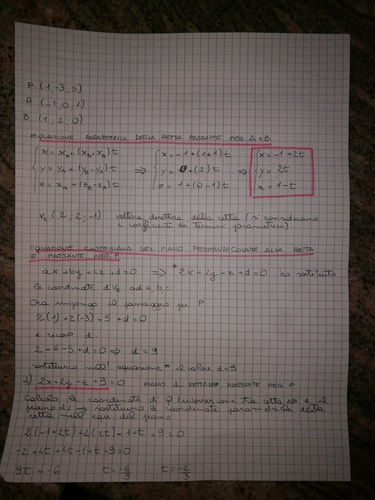 P (1;-3;5)
A (-1;0;1)
B (1;2;0)
EQUAZIONE PARAMETRICA DELLA RETTA PASSANTE PER A e B
x = xA + (xB - xA) t ⇒ x = -1 + (1+1) t ⇒ x = -1 + 2t
y = yA + (yB - yA) t y = 0 + (2) t y = 2t
z = zA + (zB - zA) t z = 1 + (0-1) t z = 1 - t
(2; 2; -1) vettore direttore della retta (si considerano
i coefficienti dei termini parametrici)
EQUAZIONE CARTESIANA DEL PIANO PERPENDICOLARE ALLA RETTA
E PASSANTE PER P
ax + by + cz + d = 0 ⇒ * 2x + 2y - z + d = 0 ho sostituito
le coordinate di ad a, b, c
Ora impongo il passaggio per P
2(1) + 2(-3) - 5 + d = 0
e ricavo d
2 - 6 - 5 + d = 0 ⇒ d = 9
sostituisco nell' equazione * il valore d = 9
2x + 2y - z + 9 = 0 PIANO ⊥ RETTA PASSANTE PER P
Calcolo le coordinate di Q (intersezione tra retta e il
piano) → sostituisco le coordinate parametriche della
retta nell' equ. del piano
2(-1 + 2t) + 2(2t) - 1 + t + 9 = 0
-2 + 4t + 4t - 1 + t + 9 = 0
9t = -6 t = -6/9 t = -2/3